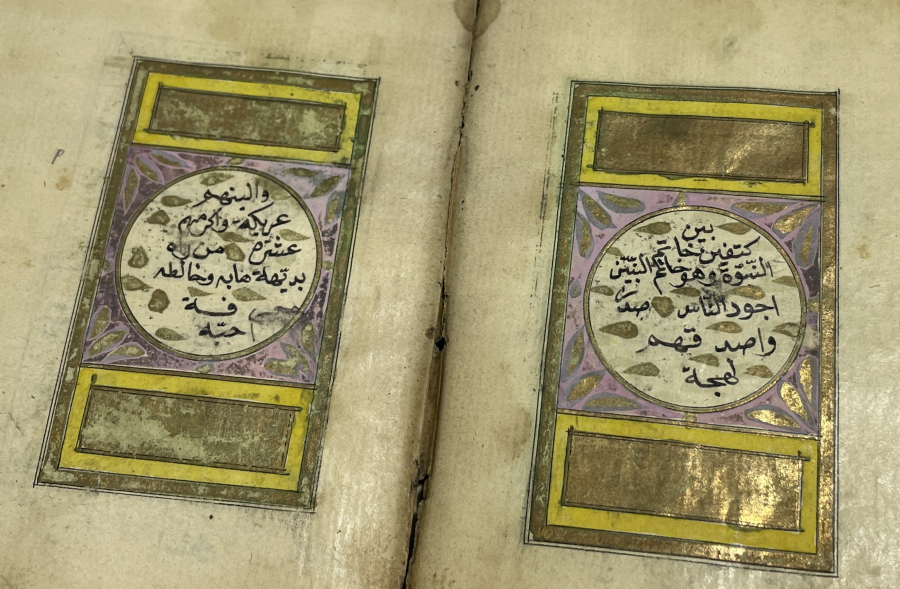 بين
كتفيه خاتم
النبّوة وهو خاتم النبيّن
اجود الناس صدرا
واصد قهم
لهجة
والينهم
عريكة واكرمهم
عشرة من
بديهة هابه وخالطه
فة
احبّه